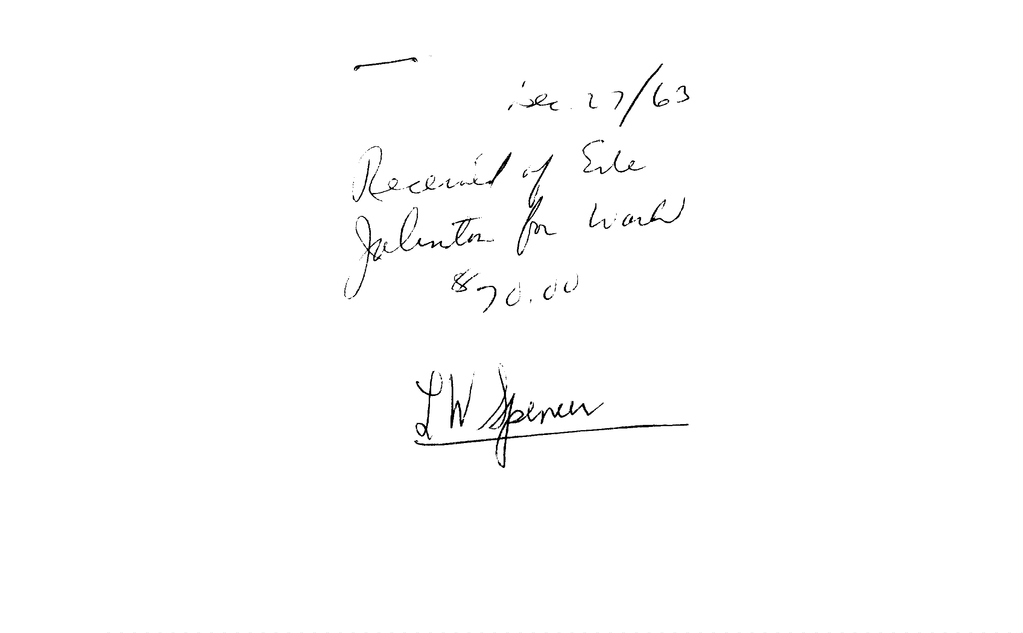 Dec. 27/63
Received of Erle
Johnston for work
$70.00
L W Spencer